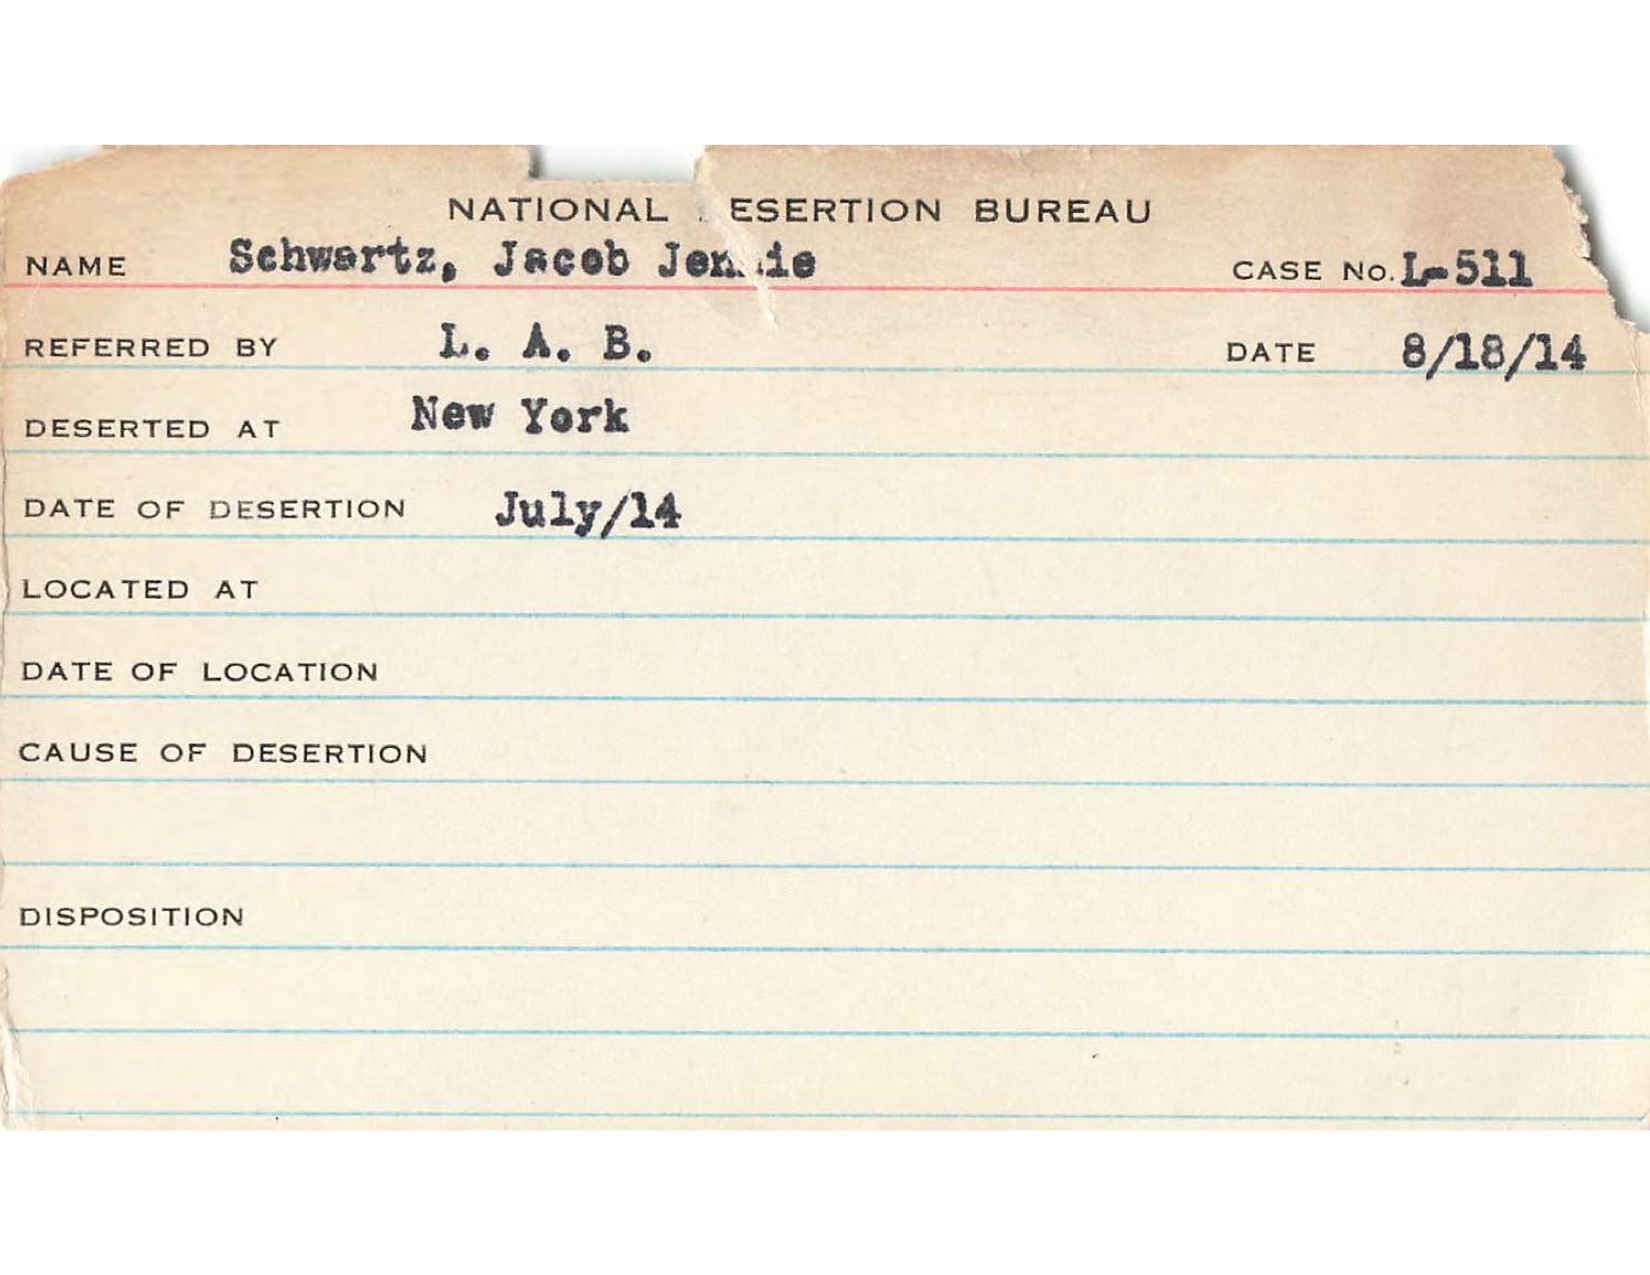 NATIONAL DESERTION BUREAU
NAME Schwartz, Jacob Jennie CASE No. L-511
REFERRED BY L. A. B. DATE 8/18/14
DESERTED AT New York
DATE OF DESERTION July/14
LOCATED AT
DATE OF LOCATION
CAUSE OF DESERTION
DISPOSITION